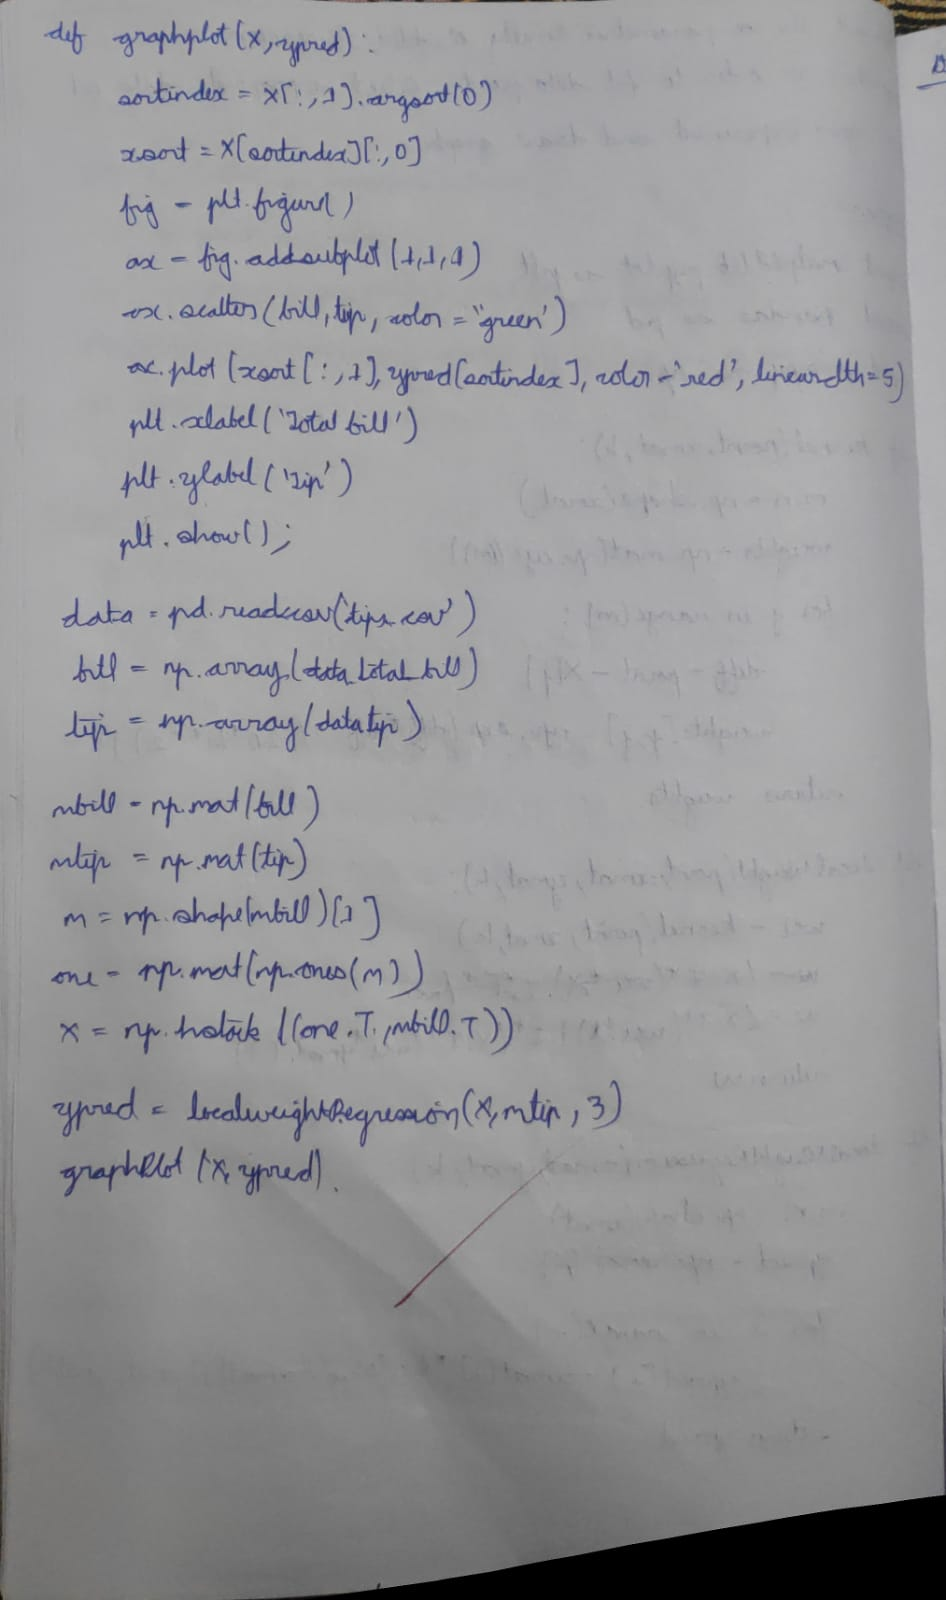 def graphplot(X, ypred):
sortindex = X[:,1].argsort(0)
xsort = X[sortindex][:,0]
fig = plt.figure()
ax = fig.addsubplot(1,1,1)
ax.scatter(bill, tip, color = "green')
ax.plot(xsort[:,1], ypred[sortindex], color = 'red', linewidth=5)
plt.xlabel('Total bill')
plt.ylabel('Tip')
plt.show();
data = pd.readcsv('tips.csv')
bill = np.array(data.total_bill)
tip = np.array(data.tip)
mbill = np.mat(bill)
mtip = np.mat(tip)
m = np.shape(mbill)[1]
one = np.mat(np.ones(m))
X = np.hstack((one.T, mbill.T))
ypred = localweightRegression(X, mtip, 3)
graphPlot(X, ypred).